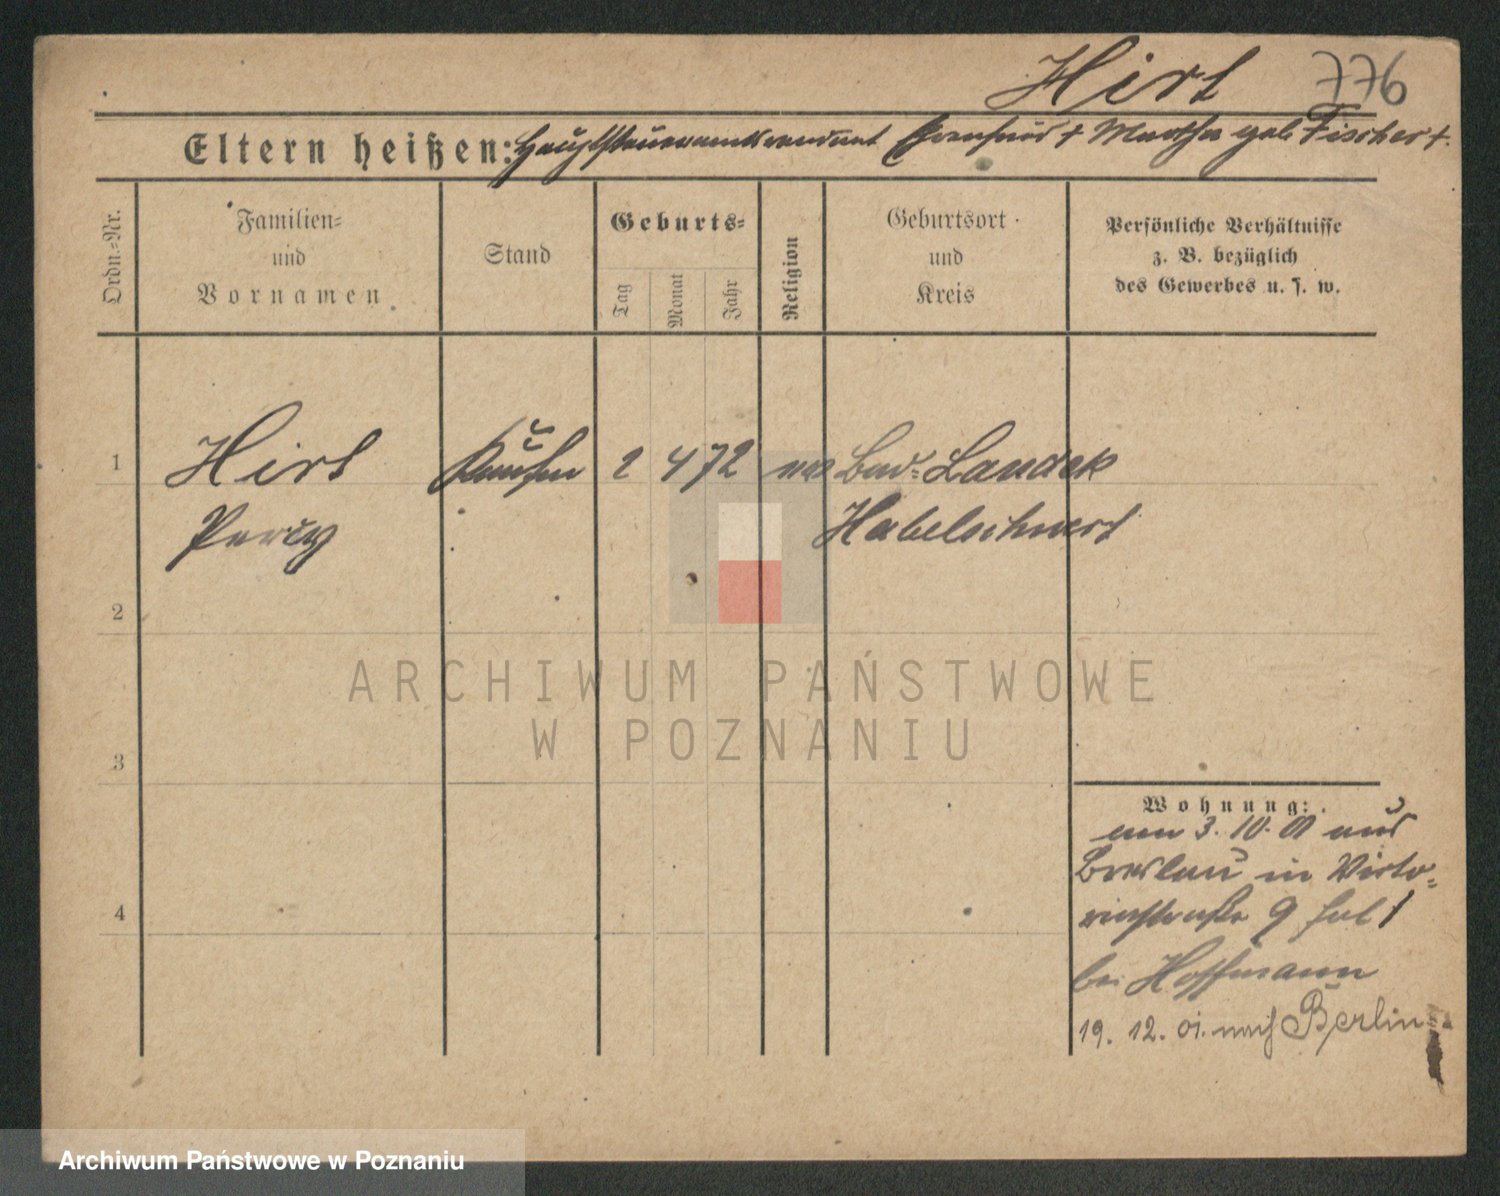 Hirt 776
Eltern heißen: Hauptsteueramtsrendant † Martha geb. Fischer †.
Ordn.=Nr.
Familien=
und
Vornamen
Stand
Geburts=
Tag
Monat
Jahr
Religion
Geburtsort
und
Kreis
Persönliche Verhältnisse
z. B. bezüglich
des Gewerbes u. s. w.
1 Hirt Kaufm 2 4 72 Bad=Landek
Percy Habelschwert
2
3
4
Wohnung:
am 3. 10. 01 aus
Breslau in Victo=
riastraße 9 bei
Hoffmann
19. 12. 01. nach Berlin
ARCHIWUM PAŃSTWOWE
W POZNANIU
Archiwum Państwowe w Poznaniu